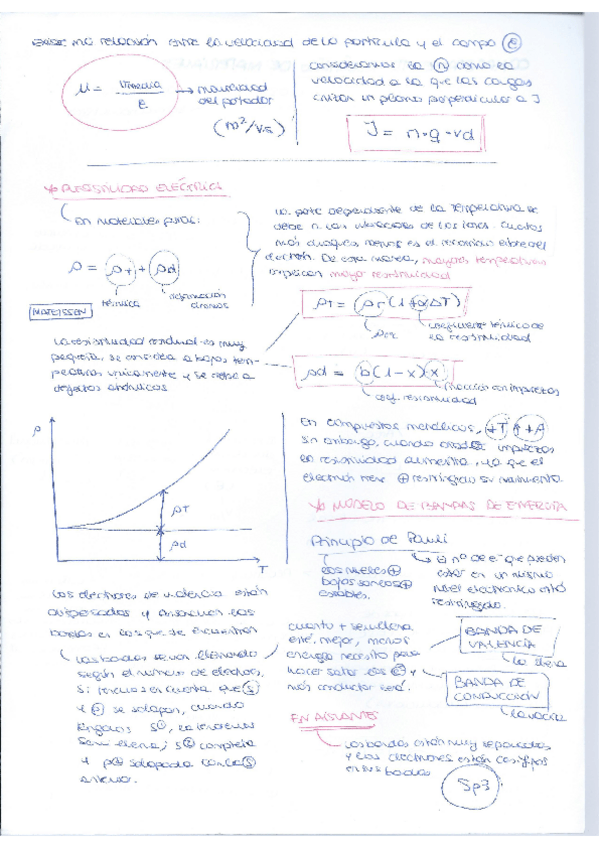 Existe una relación entre la velocidad de la partícula y el campo e
μ = vmedia / e → movilidad del portador
(m²/v.s)
consideramos la n como la
velocidad a la que las cargas
un plano perpendicular a J
J = n·q·vd
RESISTIVIDAD ELÉCTRICA
En materiales puros:
ρ = ρT + ρd
térmica
MATEISSEN
La parte dependiente de la temperatura se
debe a las vibraciones de los iones. Cuantos
más choques menor es el recorrido libre del
electrón. De esta manera, mayores temperaturas
implican mayor resistividad
ρT = ρr(1+αΔT)
coeficiente térmico de
la resistividad
ρd = b(1-x)x
coef. resistividad
La resistividad residual es muy
pequeña, se considera a bajas tem-
peraturas únicamente y se debe a
defectos atómicos
ρ
ρT
ρd
T
En compuestos metálicos, +T ↑ +ρ
Sin embargo, cuando impurezas
la resistividad aumenta, ya que el
electrón tiene + restringido su movimiento.
MODELO DE BANDAS DE ENERGÍA
Principio de Pauli
los niveles +
bajos son los +
estables.
El nº de e⁻ que pueden
estar en un mismo
nivel electrónico está
restringido.
Los electrones de valencia están
y las
bandas en las que se encuentran
Las bandas se van llenando
según el número de electrones.
Si tenemos en cuenta que s
y p se solapan, cuando
tengamos s¹, la tendremos
semi llena; s² completa
y p⁰ solapada con la s
anterior.
cuanto + semillena
esté, mejor, menos
energía necesito para
hacer saltar los e⁻ y
más conductor será.
BANDA DE
VALENCIA
la llena
BANDA DE
CONDUCCIÓN
la vacía
EN AISLANTES
Las bandas están muy separadas
y los electrones están casi fijos
en sus bandas
Sp3